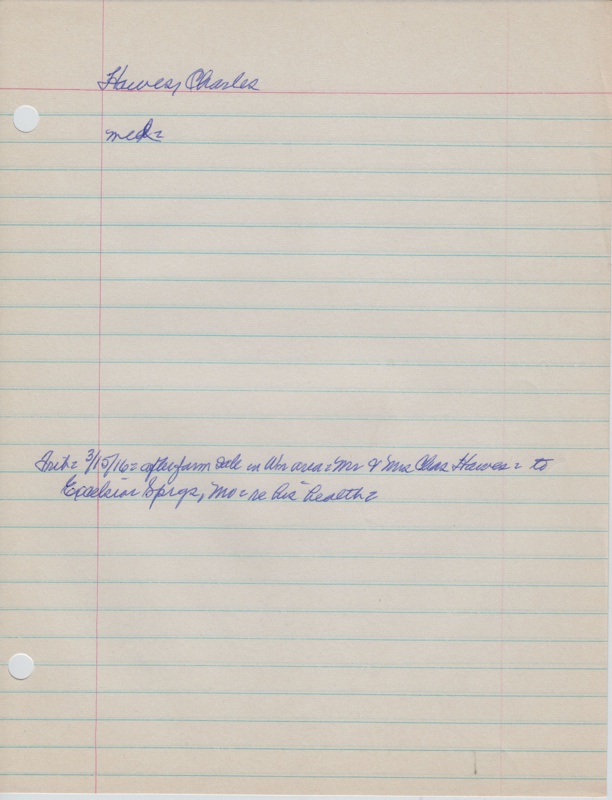 Hawes, Charles
med=
3/15/16= after farm sale in Wm area= Mr & Mrs Chas Hawes= to
Excelsior Sprgs, Mo= re his "health=